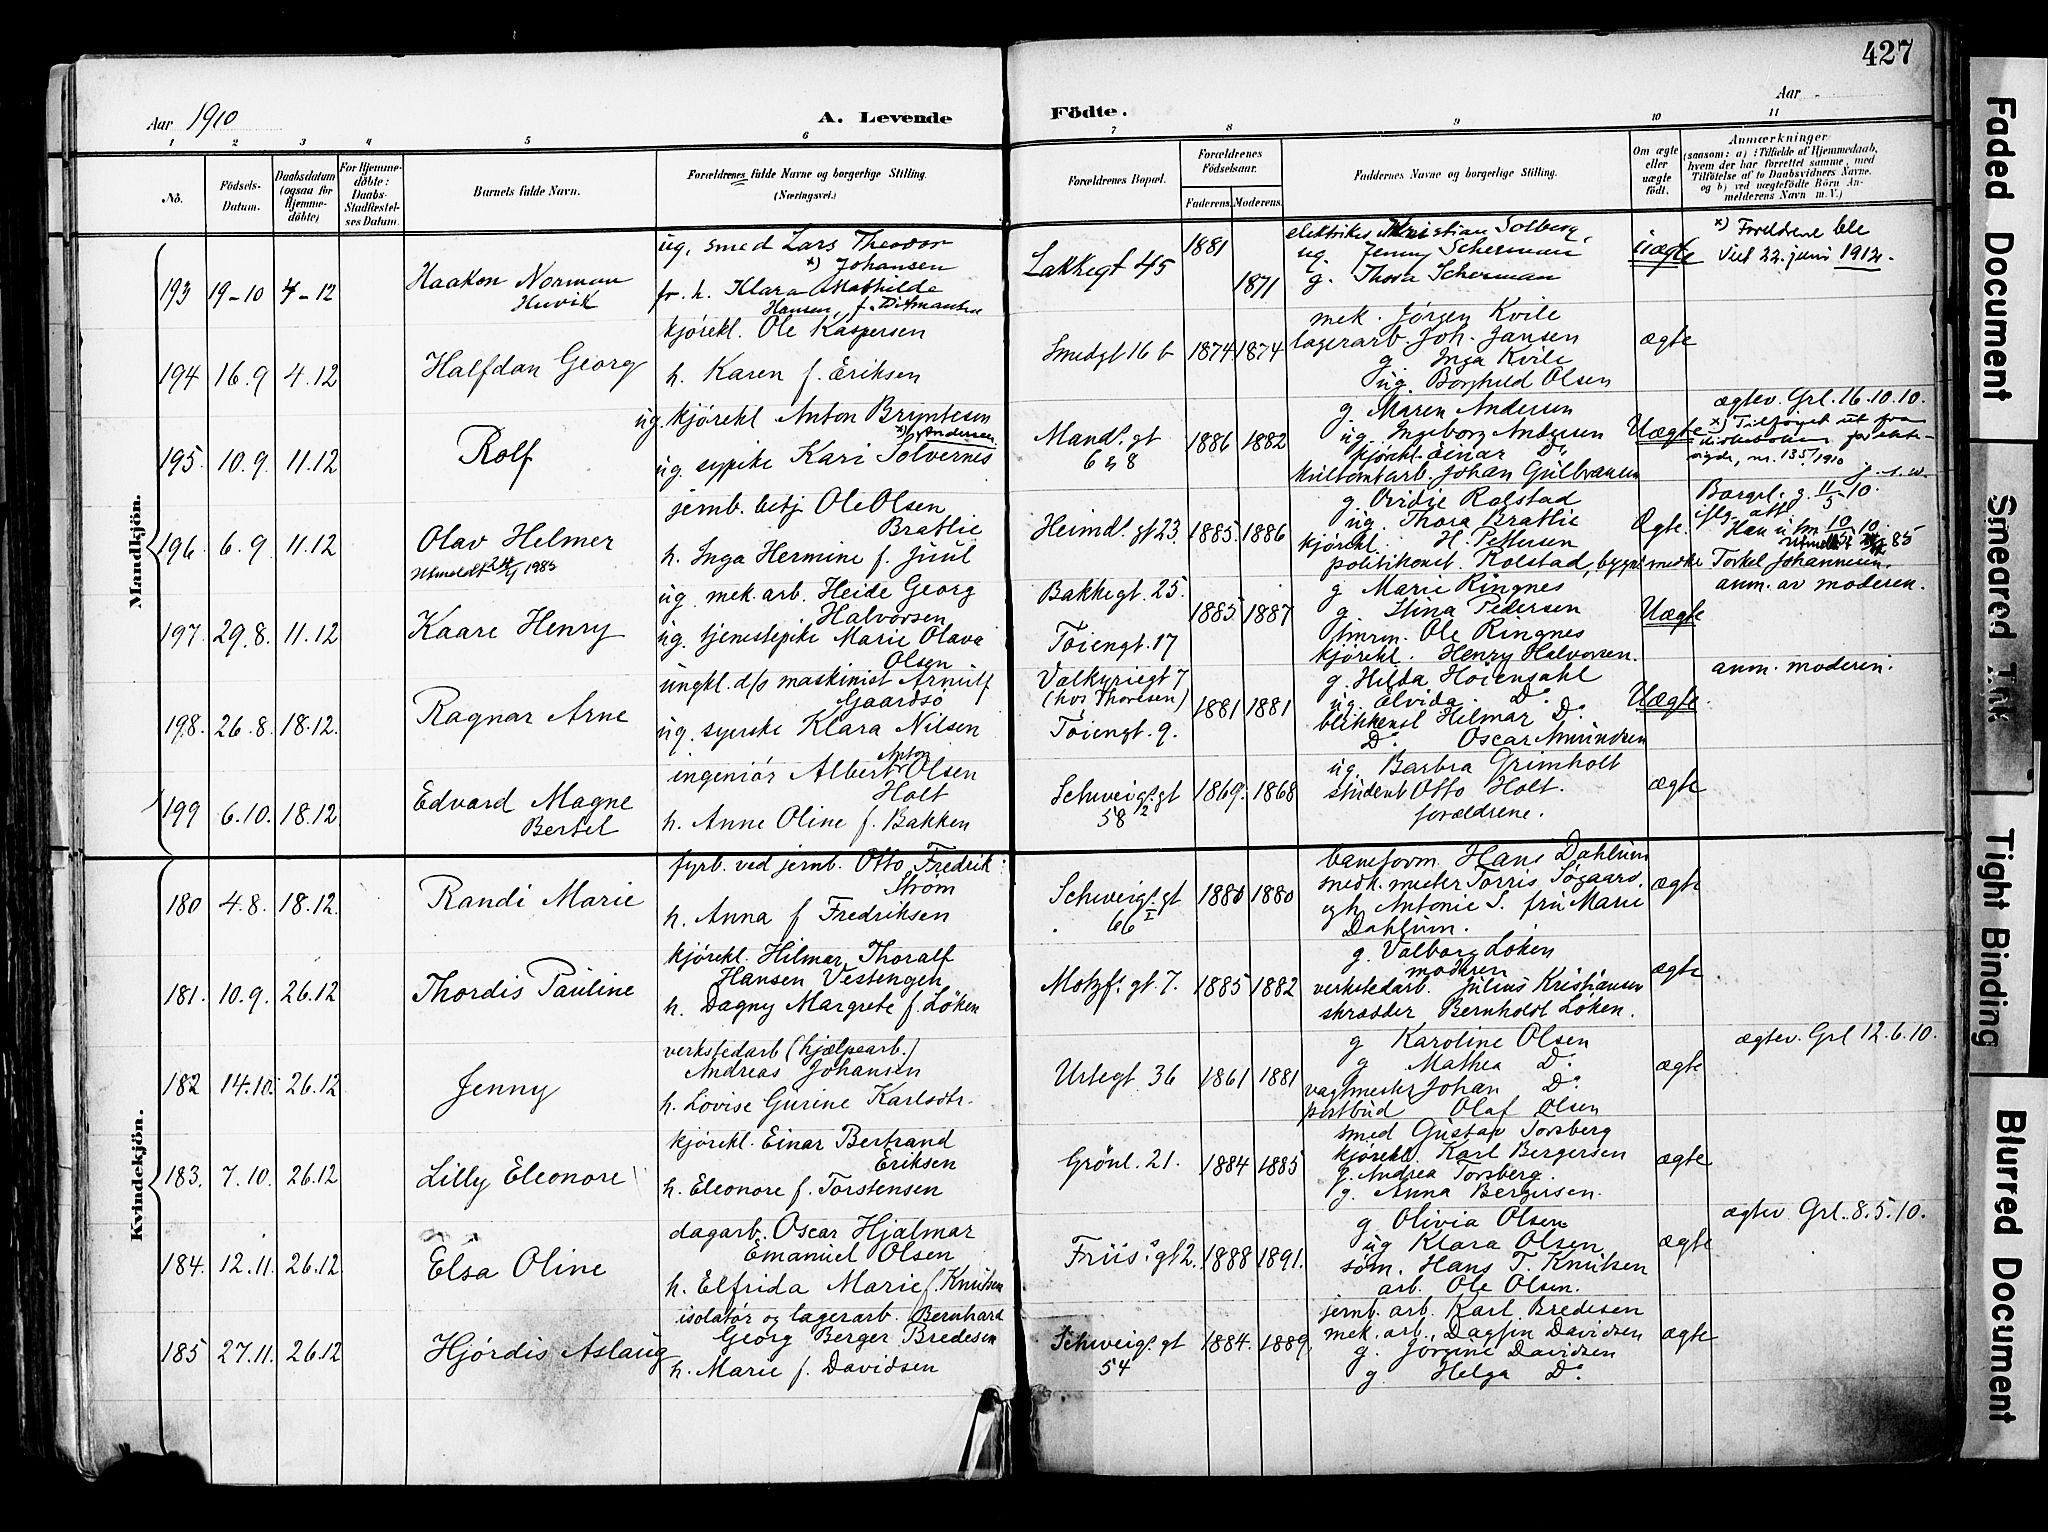 427
Aar 1910
A. Levende
Födte.
Aar
1 2 3 4 5 6 7 8 9 10 11
No.
Födsels-Datum.
Daabsdatum (ogsaa för Hjemme-döbte)
For Hjemme-döbte: Daabs-Stadfæstel-ses Datum.
Barnets fulde Navn.
Forældrenes fulde Navne og borgerlige Stilling. (Næringsvei.)
Forældrenes Bopæl.
Forældrenes Födselsaar.
Faderens. Moderens.
Faddernes Navne og borgerlige Stilling.
Om ægte eller uægte födt.
Anmærkninger
(saasom: a) i Tilfælde af Hjemmedaab,
hvem der har forrettet samme, med
Tilföielse af to Daabsvidners Navne.
og b) ved uægtefödte Börn An-
melderens Navn m. V.)
Mandkjön.
193 19-10 4-12
Haakon Norman
Huvik
ug. smed Lars Theodor
x) Johansen
fr. h. Klara Mathilde
Hansen, f. Ditmansen
Lakkegt 45
1881
1871
elektriker Kristian Solberg,
ug. Jenny Scherman
g. Thora Scherman
uægte
x) Foreldrene ble
viet 22. juni 1912.
194 16.9 4.12
Halfdan Georg
kjörekl. Ole Kaspersen
h. Karen f. Eriksen
Smedgt 16 b
1874 1874
mek. Jörgen Kvile
lagerarb. Joh. Jansen
g. Inga Kvile
ug. Borghild Olsen
ægte
195. 10.9. 11.12
Rolf
ug. kjörekl Anton Bryntesen
x) Andersen
ug. sypike Kari Solvernes
Mandl. gt
6 & 8
1886 1882
g. Maren Andersen
ug. Ingeborg Andersen
kjörekl. Einar Do
kultomtarb. Johan Gulbransen
Uægte
ægtev. Grl. 16.10.10.
x) Tilföiet ut fra
nr. 135/1910
196. 6.9 11.12
Olav Helmer
Utmeldt 24/4 1985
jernb. betj Ole Olsen
Bratlie
h. Inga Hermine f. Juul
Heimdl. gt 23.
1885. 1886
g. Ovidie Rolstad
ug. Thora Bratlie
kjörekl. H. Pettersen
politikonst. Rolstad,
Ægte.
Borgel. g. 11/5 10.
iflg. att.
197. 29.8. 11.12
Kaare Henry
ug. mek. arb. Heide Georg
Halvorsen
ug. tjenestepike Marie Olava
Olsen
Bakkegt. 25.
Töiengt. 17
1885. 1887
g Marie Ringnes
g Stina Pedersen
tmrm. Ole Ringnes
kjörekl. Henry Halvorsen.
Uægte
Torkel Johannesen.
anm. av moderen.
198. 26.8. 18.12.
Ragnar Arne
ungkl. d/s maskinist Arnulf
Gaardsö
ug. syerske Klara Nilsen
Valkyriegt 7
(hos Thoresen)
Töiengt. 9.
1881 1881
g. Hilda Höiendahl
ug. Elvida Do
blikkensl Hilmar Do
Do Oscar Amundsen
Uægte
anm. moderen.
199 6.10. 18.12.
Edvard Magne
Bertel
ingeniör Albert Anton Olsen
Holt
h. Anne Oline f. Bakken
Schweigs. gt
58 2
1869. 1868
ug. Barbra Grimholt
student Otto Holt.
forældrene.
ægte
Kvindekjön.
180 4.8. 18.12.
Randi Marie
fyrb. ved jernb. Otto Fredrik
Ström
h. Anna f Fredriksen
Schweigs. gt
66 I
1880 1880
baneform. Hans Dahlum
snedk. mester Torris Sögaard.
gh. Antonie S. fru Marie
Dahlum.
ægte
181. 10.9. 26.12
Thordis Pauline
kjörekl. Hilmar Thoralf
Hansen Vestengen
h. Dagny Margrete f. Löken
Motzf. gt. 7.
1885 1882
g. Valborg Löken
moderen
verkstedarb. Julius Kristiansen
skrædder Bernholdt Löken.
ægte
182 14.10. 26.12
Jenny
verkstedarb (hjælpearb.)
Andreas Johansen
h. Lovise Gurine Karlsdtr.
Urtegt 36
1861 1881
g Karoline Olsen
g Mathea Do
vagtmester Johan Do
postbud Olaf Olsen
ægte
ægtev. Grl 12.6.10.
183. 7.10. 26.12
Lilly Eleonore
kjörekl. Einar Bertrand
Eriksen
h. Eleonore f. Torstensen
Grönl. 21.
1884 1885
smed Gustav Torsberg
kjörekl. Karl Bergersen
g. Andrea Torsberg.
g. Anna Bergersen.
ægte
184. 12.11. 26.12
Elsa Oline
dagarb. Oscar Hjalmar
Emanuel Olsen
h. Elfrida Marie f. Knutsen
Friis' gt 2.
1888 1891.
g Olivia Olsen
ug Klara Olsen
söm. Hans T. Knutsen
arb. Ole Olsen.
ægte
ægtev Grl. 8.5.10.
185 27.11. 26.12
Hjördis Aslaug
isolatör og lagerarb. Bernhard
Georg Berger Bredesen
h. Marie f. Davidsen
Schweigs. gt
54
1884. 1889.
jernb. arb. Karl Bredesen
mek. arb. Dagfin Davidsen
g. Jörgine Davidsen
g Helga Do
ægte
Faded Document
Smeared Ink
Tight Binding
Blurred Document